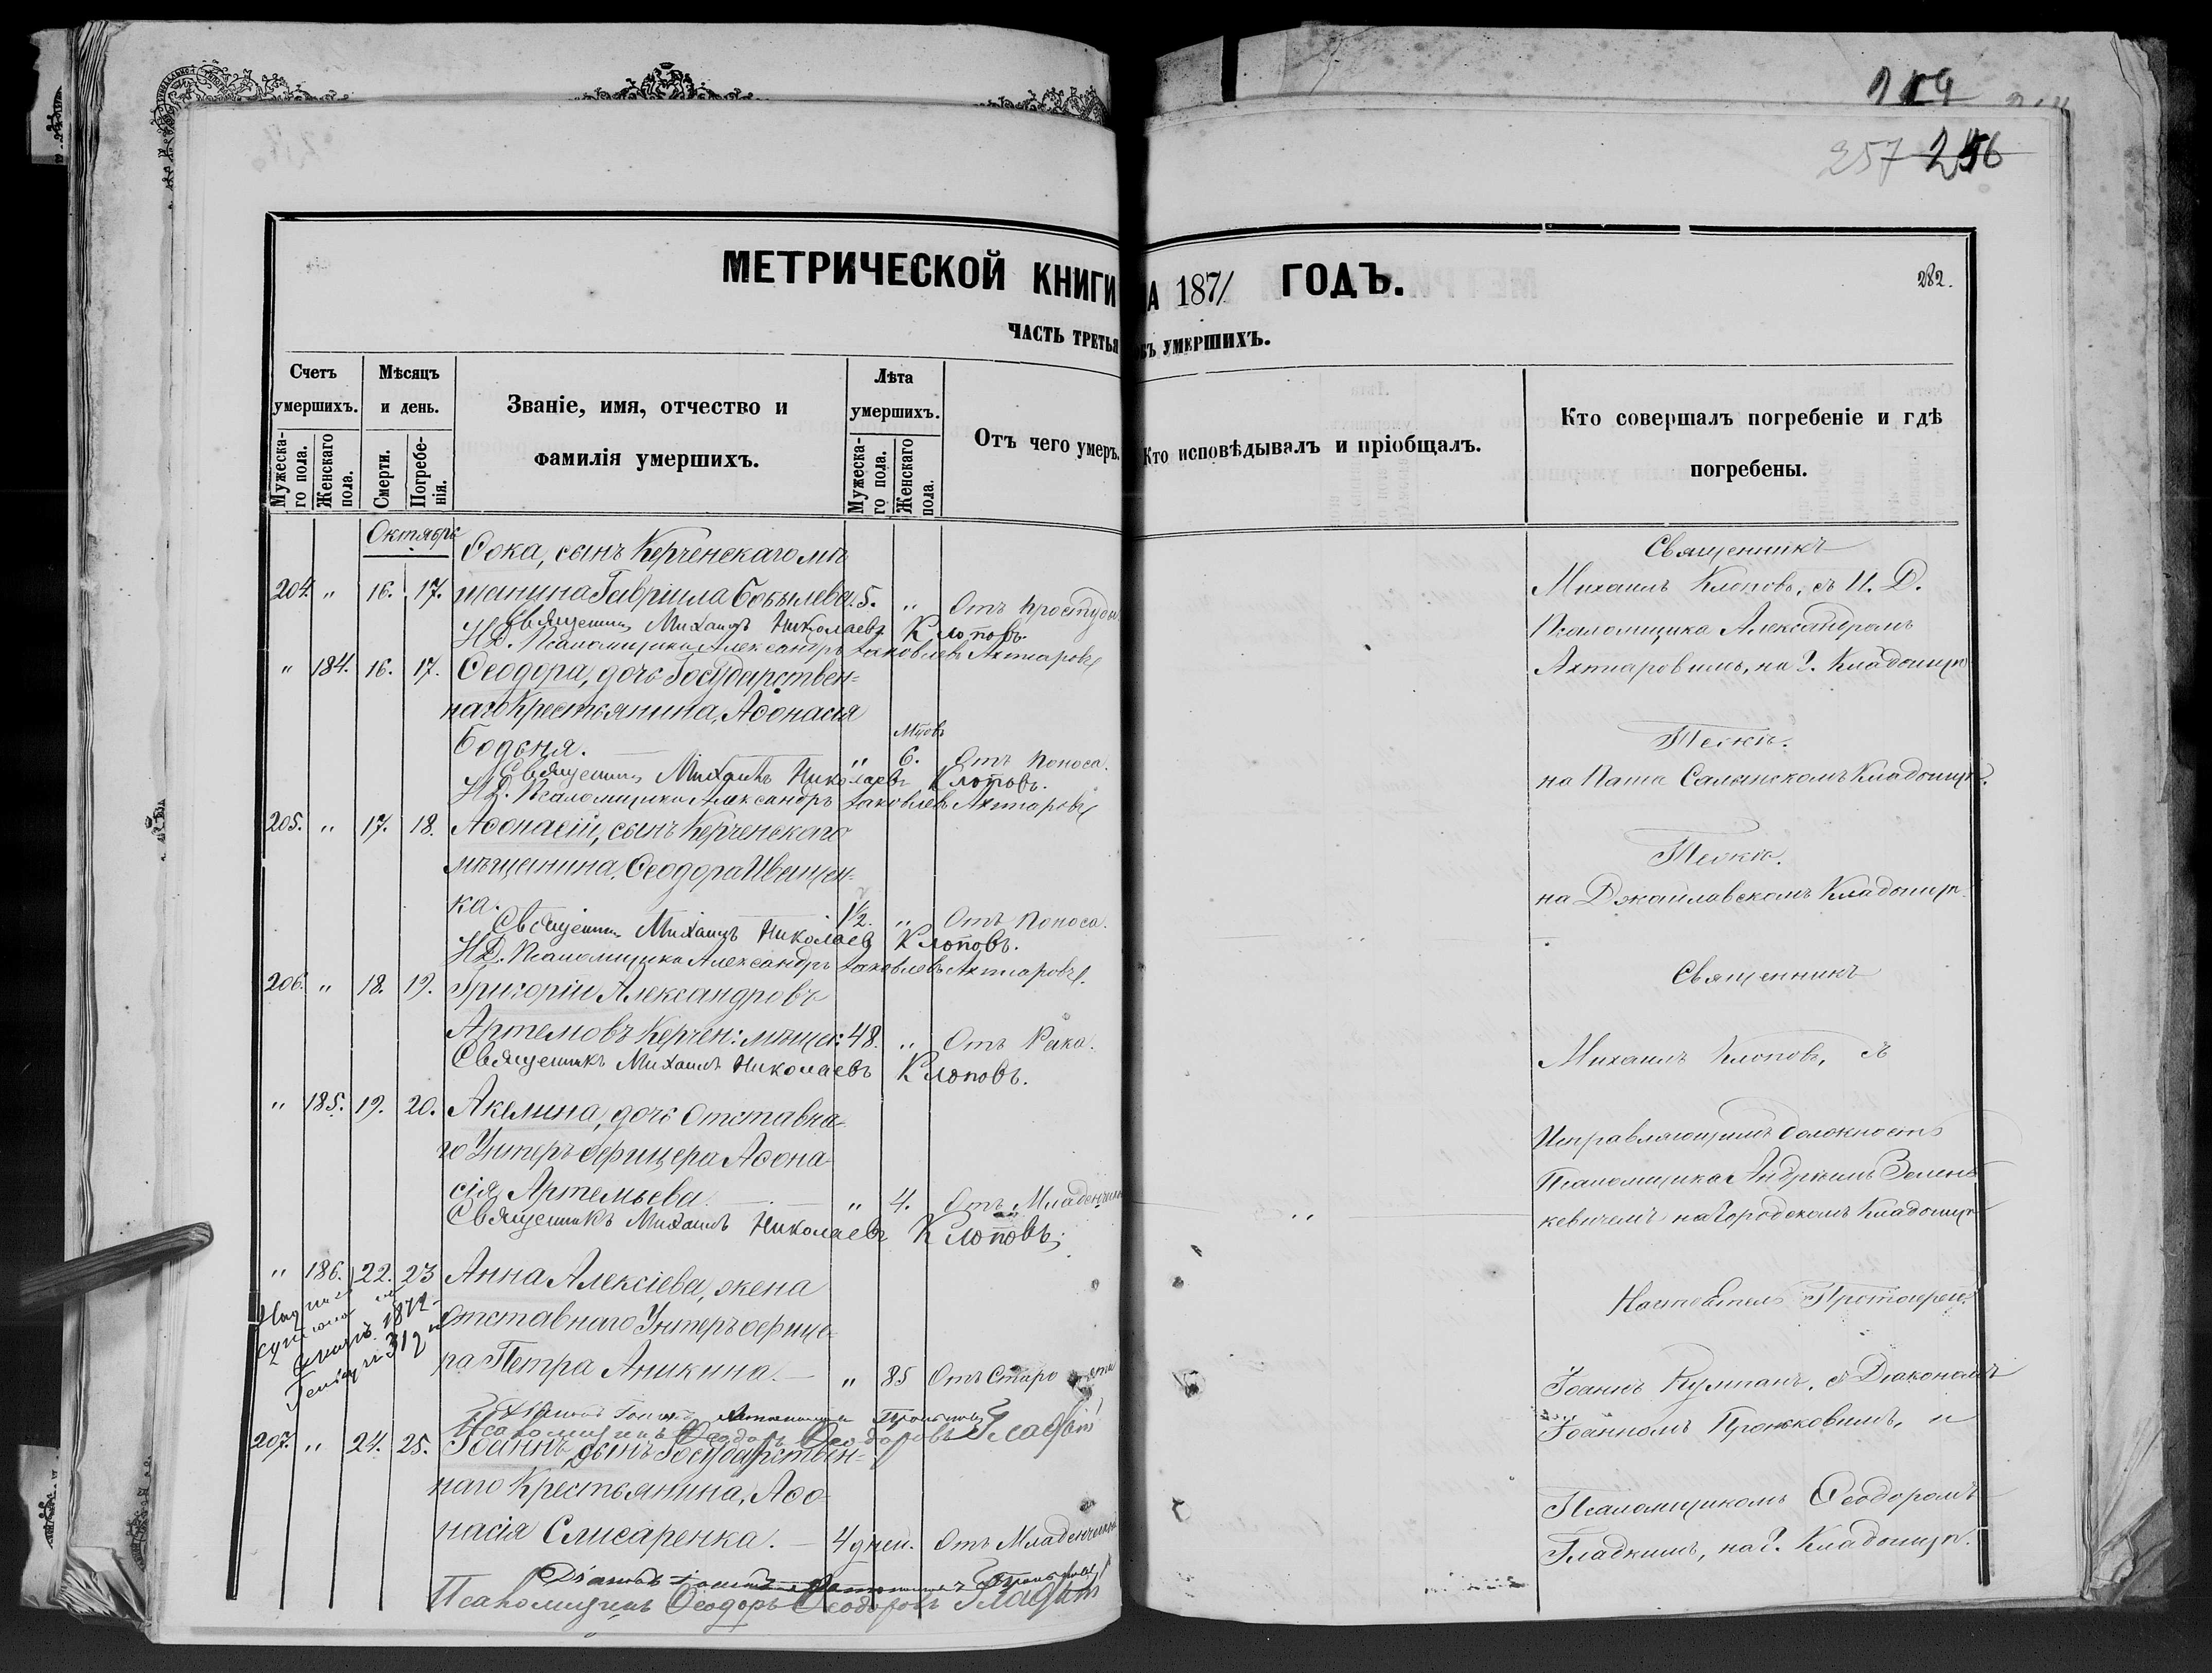 257 246
МЕТРИЧЕСКОЙ КНИГИ НА 1871 ГОДЪ.
282.
ЧАСТЬ ТРЕТЬЯ ОБЪ УМЕРШИХЪ.
Счетъ умершихъ.
Мужеска-го пола.
Женскаго пола.
Мѣсяцъ и день.
Смерти.
Погребе-нія.
Званіе, имя, отчество и
фамилія умершихъ.
Лѣта умершихъ.
Мужеска-го пола.
Женскаго пола.
Отъ чего умеръ.
Кто исповѣдывалъ и пріобщалъ.
Кто совершалъ погребеніе и гдѣ
погребены.
Октябрь
Ѳока, сынъ Керченскаго мѣ
204. " 16. 17. щанина Гавріила Бобылева. 5. " Отъ простуды
Священникъ Михаилъ Николаевъ Клоповъ.
И.Д. Псаломщика Александръ Яковлевъ Ахтаровъ
Священникъ
Михаилъ Клоповъ, съ И. Д.
Псаломщика Александромъ
Ахтаровымъ, на Г. Кладбищѣ
" 184. 16. 17. Ѳеодора, дочь Государствен=
наго Крестьянина, Аѳонасія
Мцовъ
Бодьня. " 6. Отъ поноса.
Священникъ Михаилъ Николаевъ Клоповъ.
И.Д. Псаломщика Александръ Яковлевъ Ахтаровъ
Тѣже.
на Паша Салынскомъ Кладбищѣ.
205. " 17. 18. Аѳонасій, сынъ Керченскаго
мѣщанина, Ѳеодора Иващен=
ка. 1½. " Отъ поноса.
Священникъ Михаилъ Николаевъ Клоповъ.
И.Д. Псаломщика Александръ Яковлевъ Ахтаровъ.
Тѣже.
на Джайлавскомъ Кладбищѣ
206. " 18. 19. Григорій Александровъ
Артемовъ Керчен: мѣщан: 48. " Отъ Рака.
Священникъ Михаилъ Николаевъ Клоповъ.
Священникъ
Михаилъ Клоповъ, съ
" 185. 19. 20. Акелина, дочь Отставна=
го Унтеръ офицера Аѳона
сія Артемьева. " 4. Отъ Младенческ
Священникъ Михаилъ Николаевъ Клоповъ;
Исправляющимъ должность
Псаломщика Андреемъ Зелень
кевичемъ на Городскомъ Кладбищѣ
" 186. 22. 23 Анна Алексіева, жена
Отставнаго Унтеръ офице=
ра Петра Аникина. " 85 Отъ Старо
Псаломщикъ Ѳеодоръ Ѳеодоровъ Гладкій
Настоятель Протоіерей
207. " 24. 25. Іоаннъ, сынъ Государствен=
наго Крестьянина, Аѳо
насія Слисаренка. 4 дней. Отъ Младенческ
Псаломщикъ Ѳеодоръ Ѳеодоровъ Гладкій
Іоаннъ Кулманъ, съ Діакономъ
Іоанномъ Проньковимъ, и
Псаломщикомъ Ѳеодоромъ
Гладкимъ, на Г. Кладбищѣ.